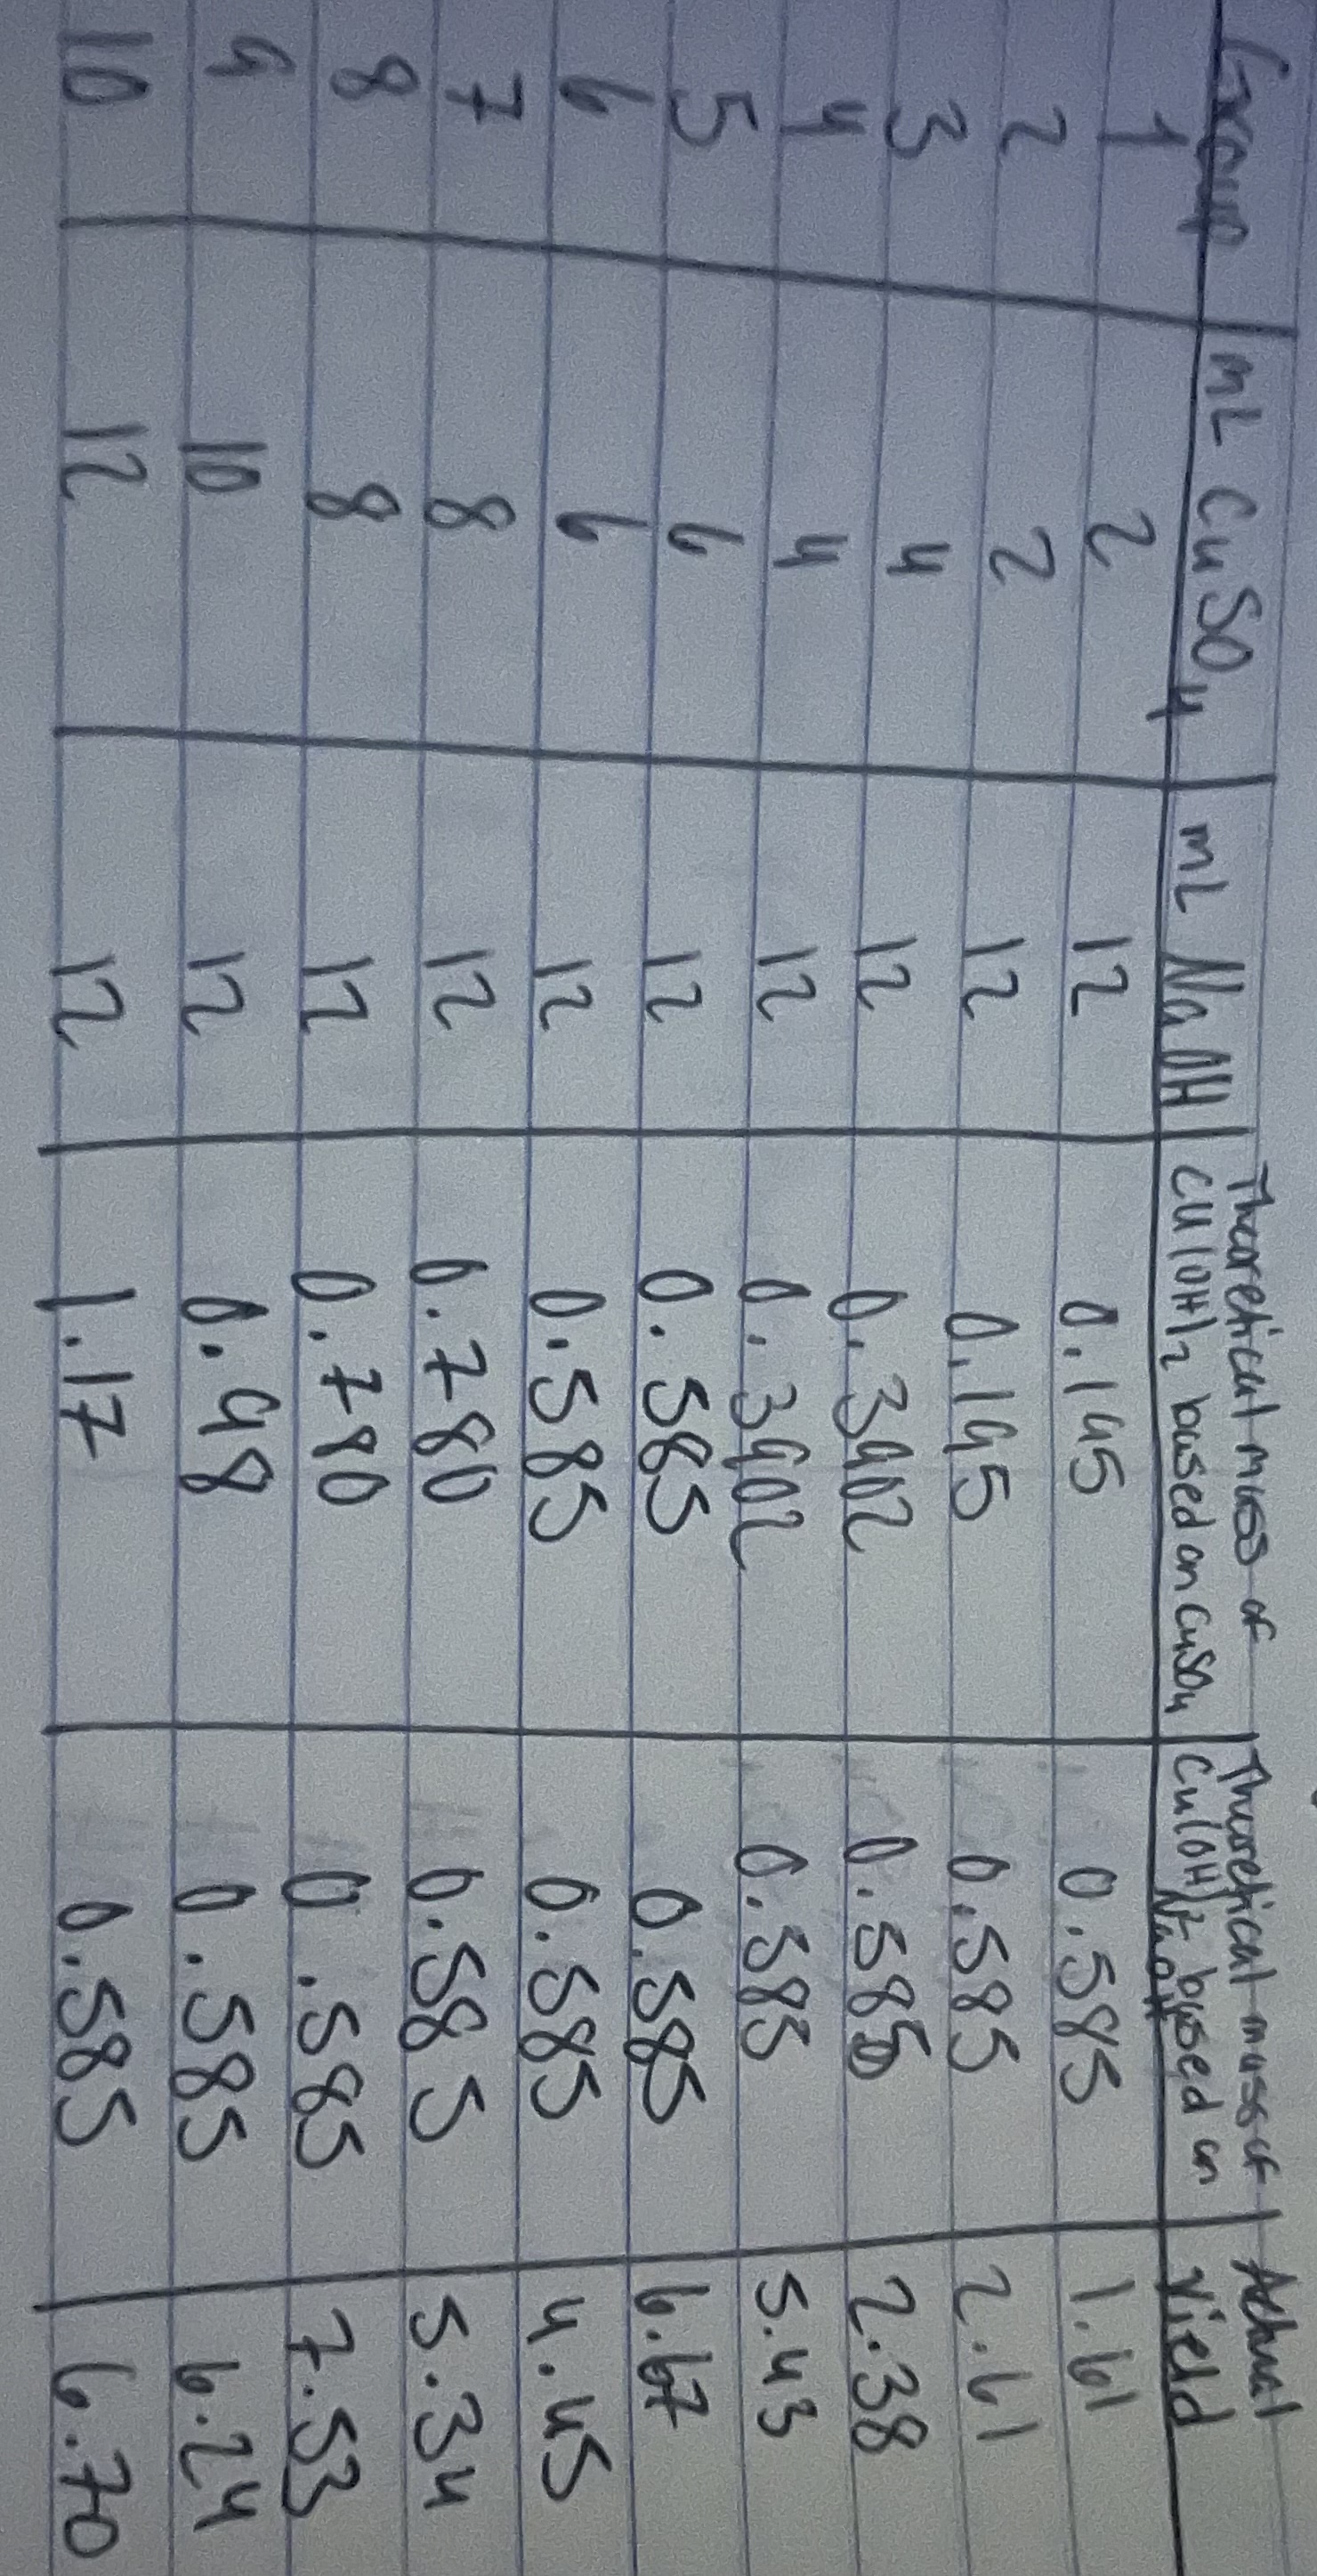 Group | mL CuSO4 | mL NaOH | Theoretical mass of Cu(OH)2 based on CuSO4 | Theoretical mass of Cu(OH)2 based on NaOH | Actual Yield
1 | 2 | 12 | 0.195 | 0.585 | 1.61
2 | 2 | 12 | 0.195 | 0.585 | 2.61
3 | 4 | 12 | 0.3902 | 0.585 | 2.38
4 | 4 | 12 | 0.3902 | 0.585 | 5.43
5 | 6 | 12 | 0.585 | 0.585 | 6.67
6 | 6 | 12 | 0.585 | 0.585 | 4.45
7 | 8 | 12 | 0.780 | 0.585 | 5.34
8 | 8 | 12 | 0.780 | 0.585 | 7.53
9 | 10 | 12 | 0.98 | 0.585 | 6.24
10 | 12 | 12 | 1.17 | 0.585 | 6.70